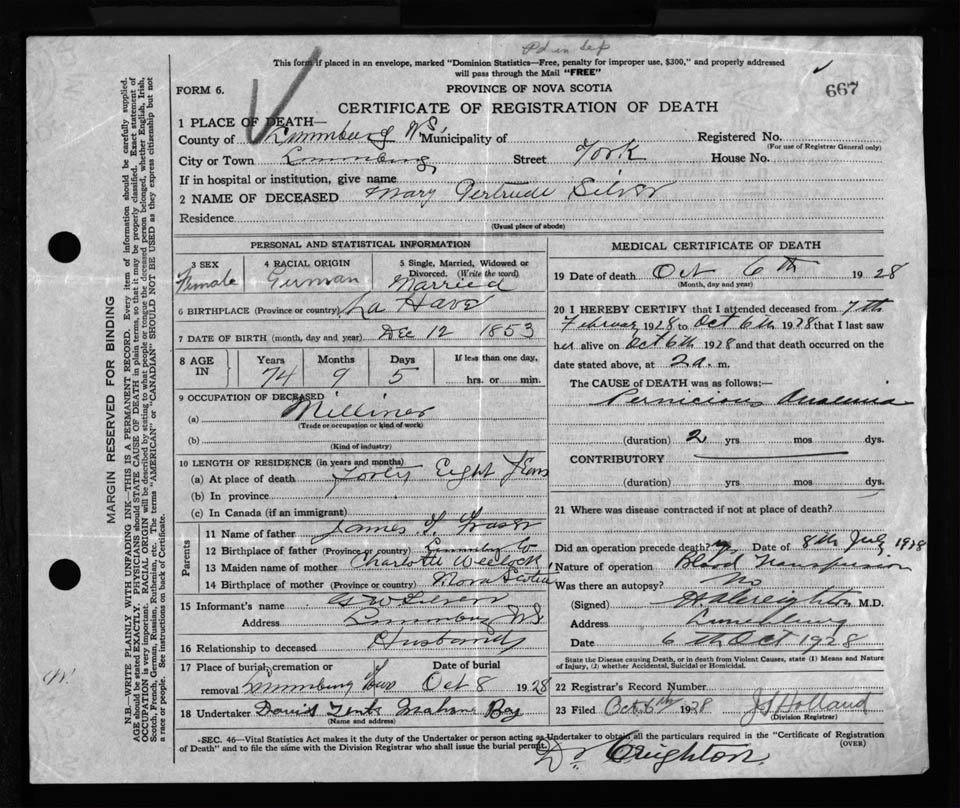 Pd in dep
This form if placed in an envelope, marked "Dominion Statistics—Free, penalty for improper use, $300," and properly addressed
will pass through the Mail "FREE"
FORM 6.
PROVINCE OF NOVA SCOTIA
667
CERTIFICATE OF REGISTRATION OF DEATH
1 PLACE OF DEATH—
County of Lunenburg N.S. Municipality of
Registered No.
(For use of Registrar General only)
City or Town Lunenburg Street York House No.
If in hospital or institution, give name
2 NAME OF DECEASED Mary Gertrude Silver
Residence
(Usual place of abode)
PERSONAL AND STATISTICAL INFORMATION
3 SEX
Female
4 RACIAL ORIGIN
German
5 Single, Married, Widowed or
Divorced. (Write the word)
Married
6 BIRTHPLACE (Province or country) La Have
7 DATE OF BIRTH (month, day and year) Dec 12 1853
8 AGE IN
Years Months Days If less than one day,
74 9 5 hrs. or min.
9 OCCUPATION OF DECEASED
(a) Milliner
(Trade or occupation or kind of work)
(b)
(Kind of industry)
10 LENGTH OF RESIDENCE (in years and months)
(a) At place of death Forty Eight Years
(b) In province
(c) In Canada (if an immigrant)
Parents
11 Name of father James Fraser
12 Birthplace of father (Province or country) Lunenburg Co
13 Maiden name of mother Charlotte
14 Birthplace of mother (Province or country) Nova Scotia
15 Informant's name G W Silver
Address Lunenburg NS
16 Relationship to deceased Husband
17 Place of burial, cremation or Date of burial
removal Lunenburg Oct 8 1928
18 Undertaker David Mahone Bay
(Name and address)
MEDICAL CERTIFICATE OF DEATH
19 Date of death Oct 6th 1928
(Month, day and year)
20 I HEREBY CERTIFY that I attended deceased from 7th
February 1928 to Oct 6th 1928 that I last saw
her alive on Oct 6th 1928 and that death occurred on the
date stated above, at 2 a. m.
The CAUSE OF DEATH was as follows:—
Pernicious Anaemia
(duration) 2 yrs mos dys.
CONTRIBUTORY
(duration) yrs. mos. dys.
21 Where was disease contracted if not at place of death?
Did an operation precede death? yes Date of 8th July 1928
Nature of operation Blood Transfusion
Was there an autopsy? No
(Signed) Creighton M.D.
Address Lunenburg
Date 6th Oct 1928
State the Disease causing Death, or in death from Violent Causes, state (1) Means and Nature
of Injury, (2) whether Accidental, Suicidal or Homicidal.
22 Registrar's Record Number
23 Filed Oct 6th 1928 Holland
(Division Registrar)
SEC. 46—Vital Statistics Act makes it the duty of the Undertaker or person acting as Undertaker to obtain all the particulars required in the "Certificate of Registration
of Death" and to file the same with the Division Registrar who shall issue the burial permit.
(OVER)
Dr Creighton
MARGIN RESERVED FOR BINDING
N.B.—WRITE PLAINLY WITH UNFADING INK—THIS IS A PERMANENT RECORD. Every item of information should be carefully supplied.
AGE should be stated EXACTLY. PHYSICIANS should STATE CAUSE OF DEATH in plain terms, so that it may be properly classified. Exact statement of
OCCUPATION is very important. RACIAL ORIGIN will be described by stating to what people or tongue the deceased person belonged, whether English, Irish,
Scotch, French, German, Russian, Ruthenian, etc. The terms "AMERICAN" or "CANADIAN" SHOULD NOT BE USED as they express citizenship but not
a race or people. See instructions on back of Certificate.